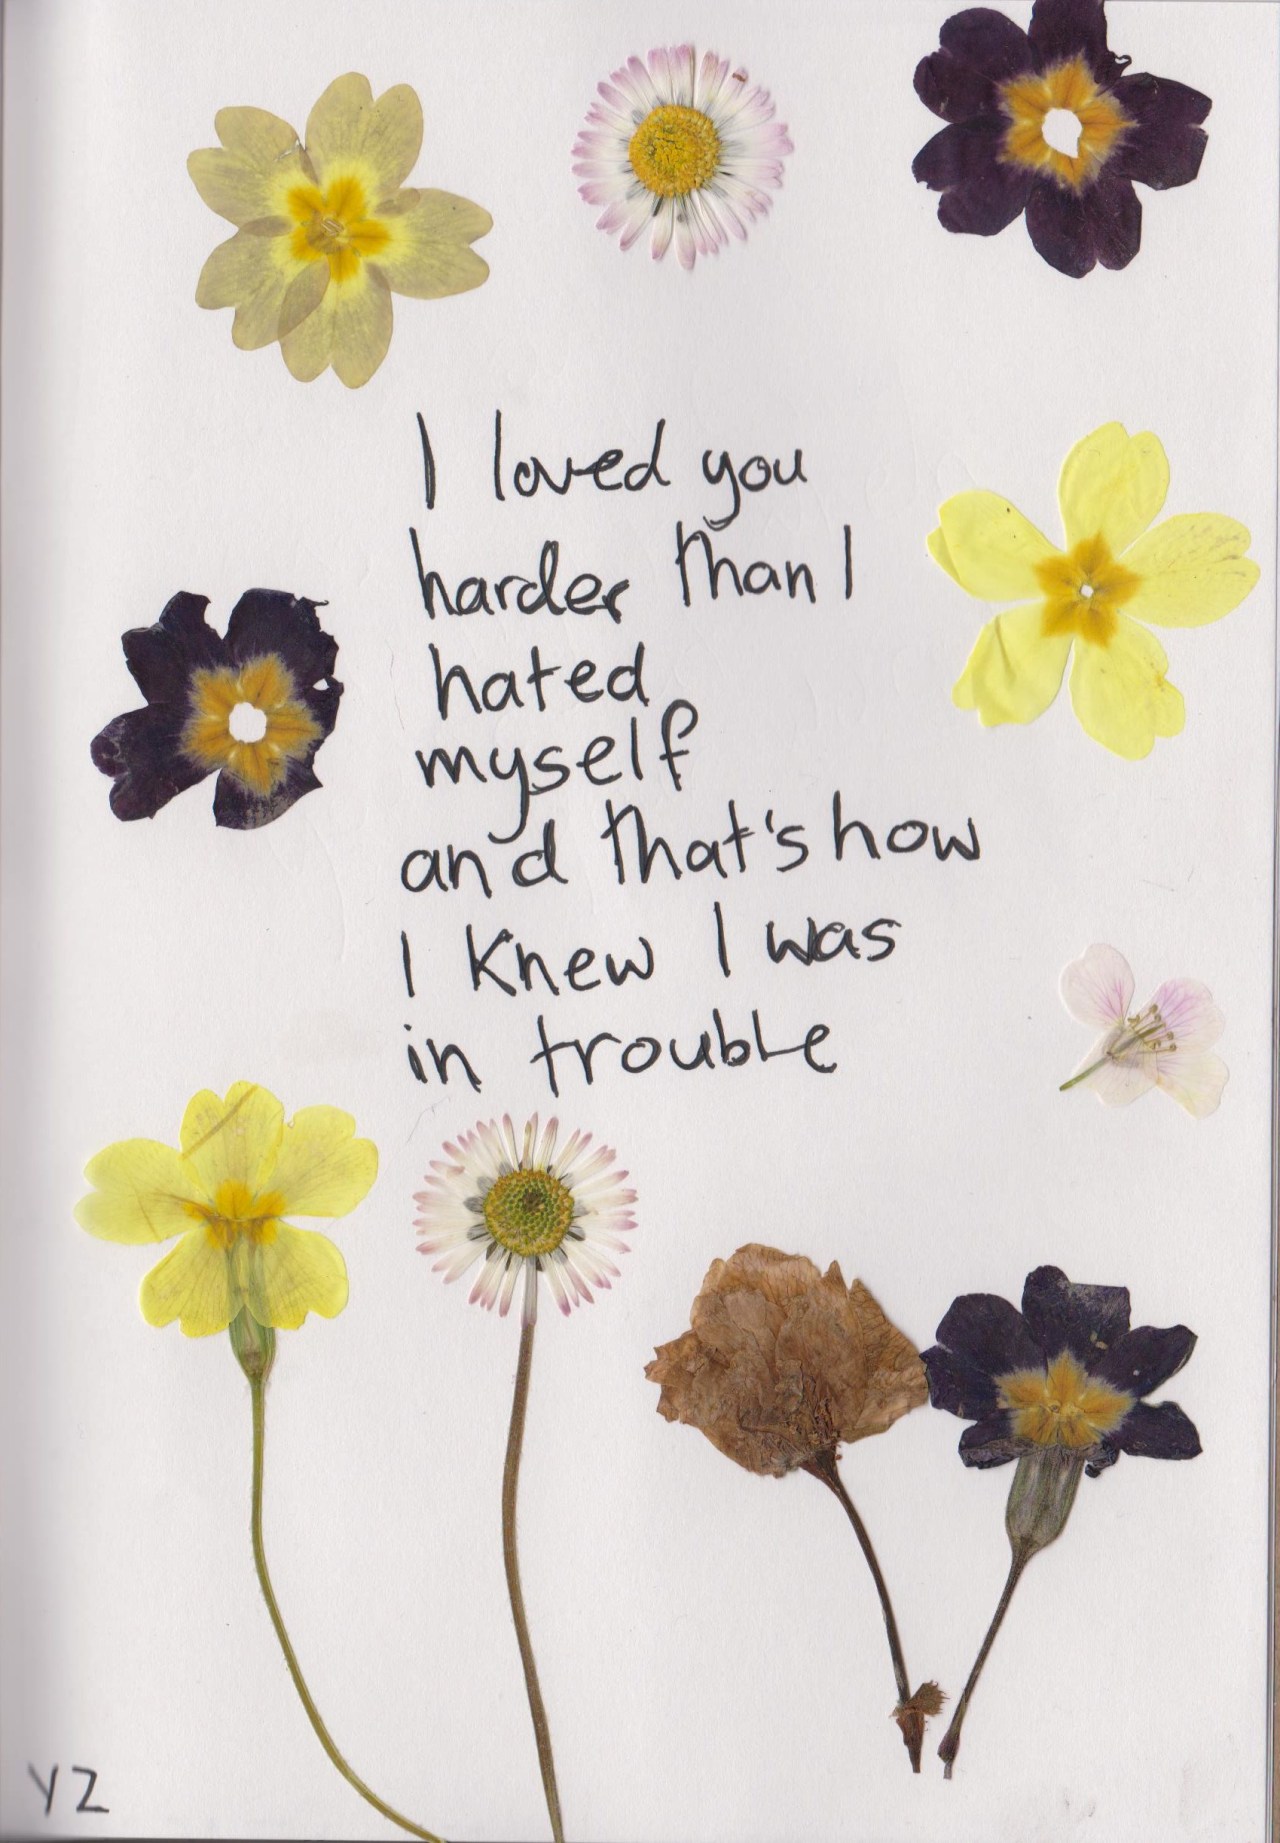 I loved you
harder than I
hated
myself
and that's how
I knew I was
in trouble
YZ